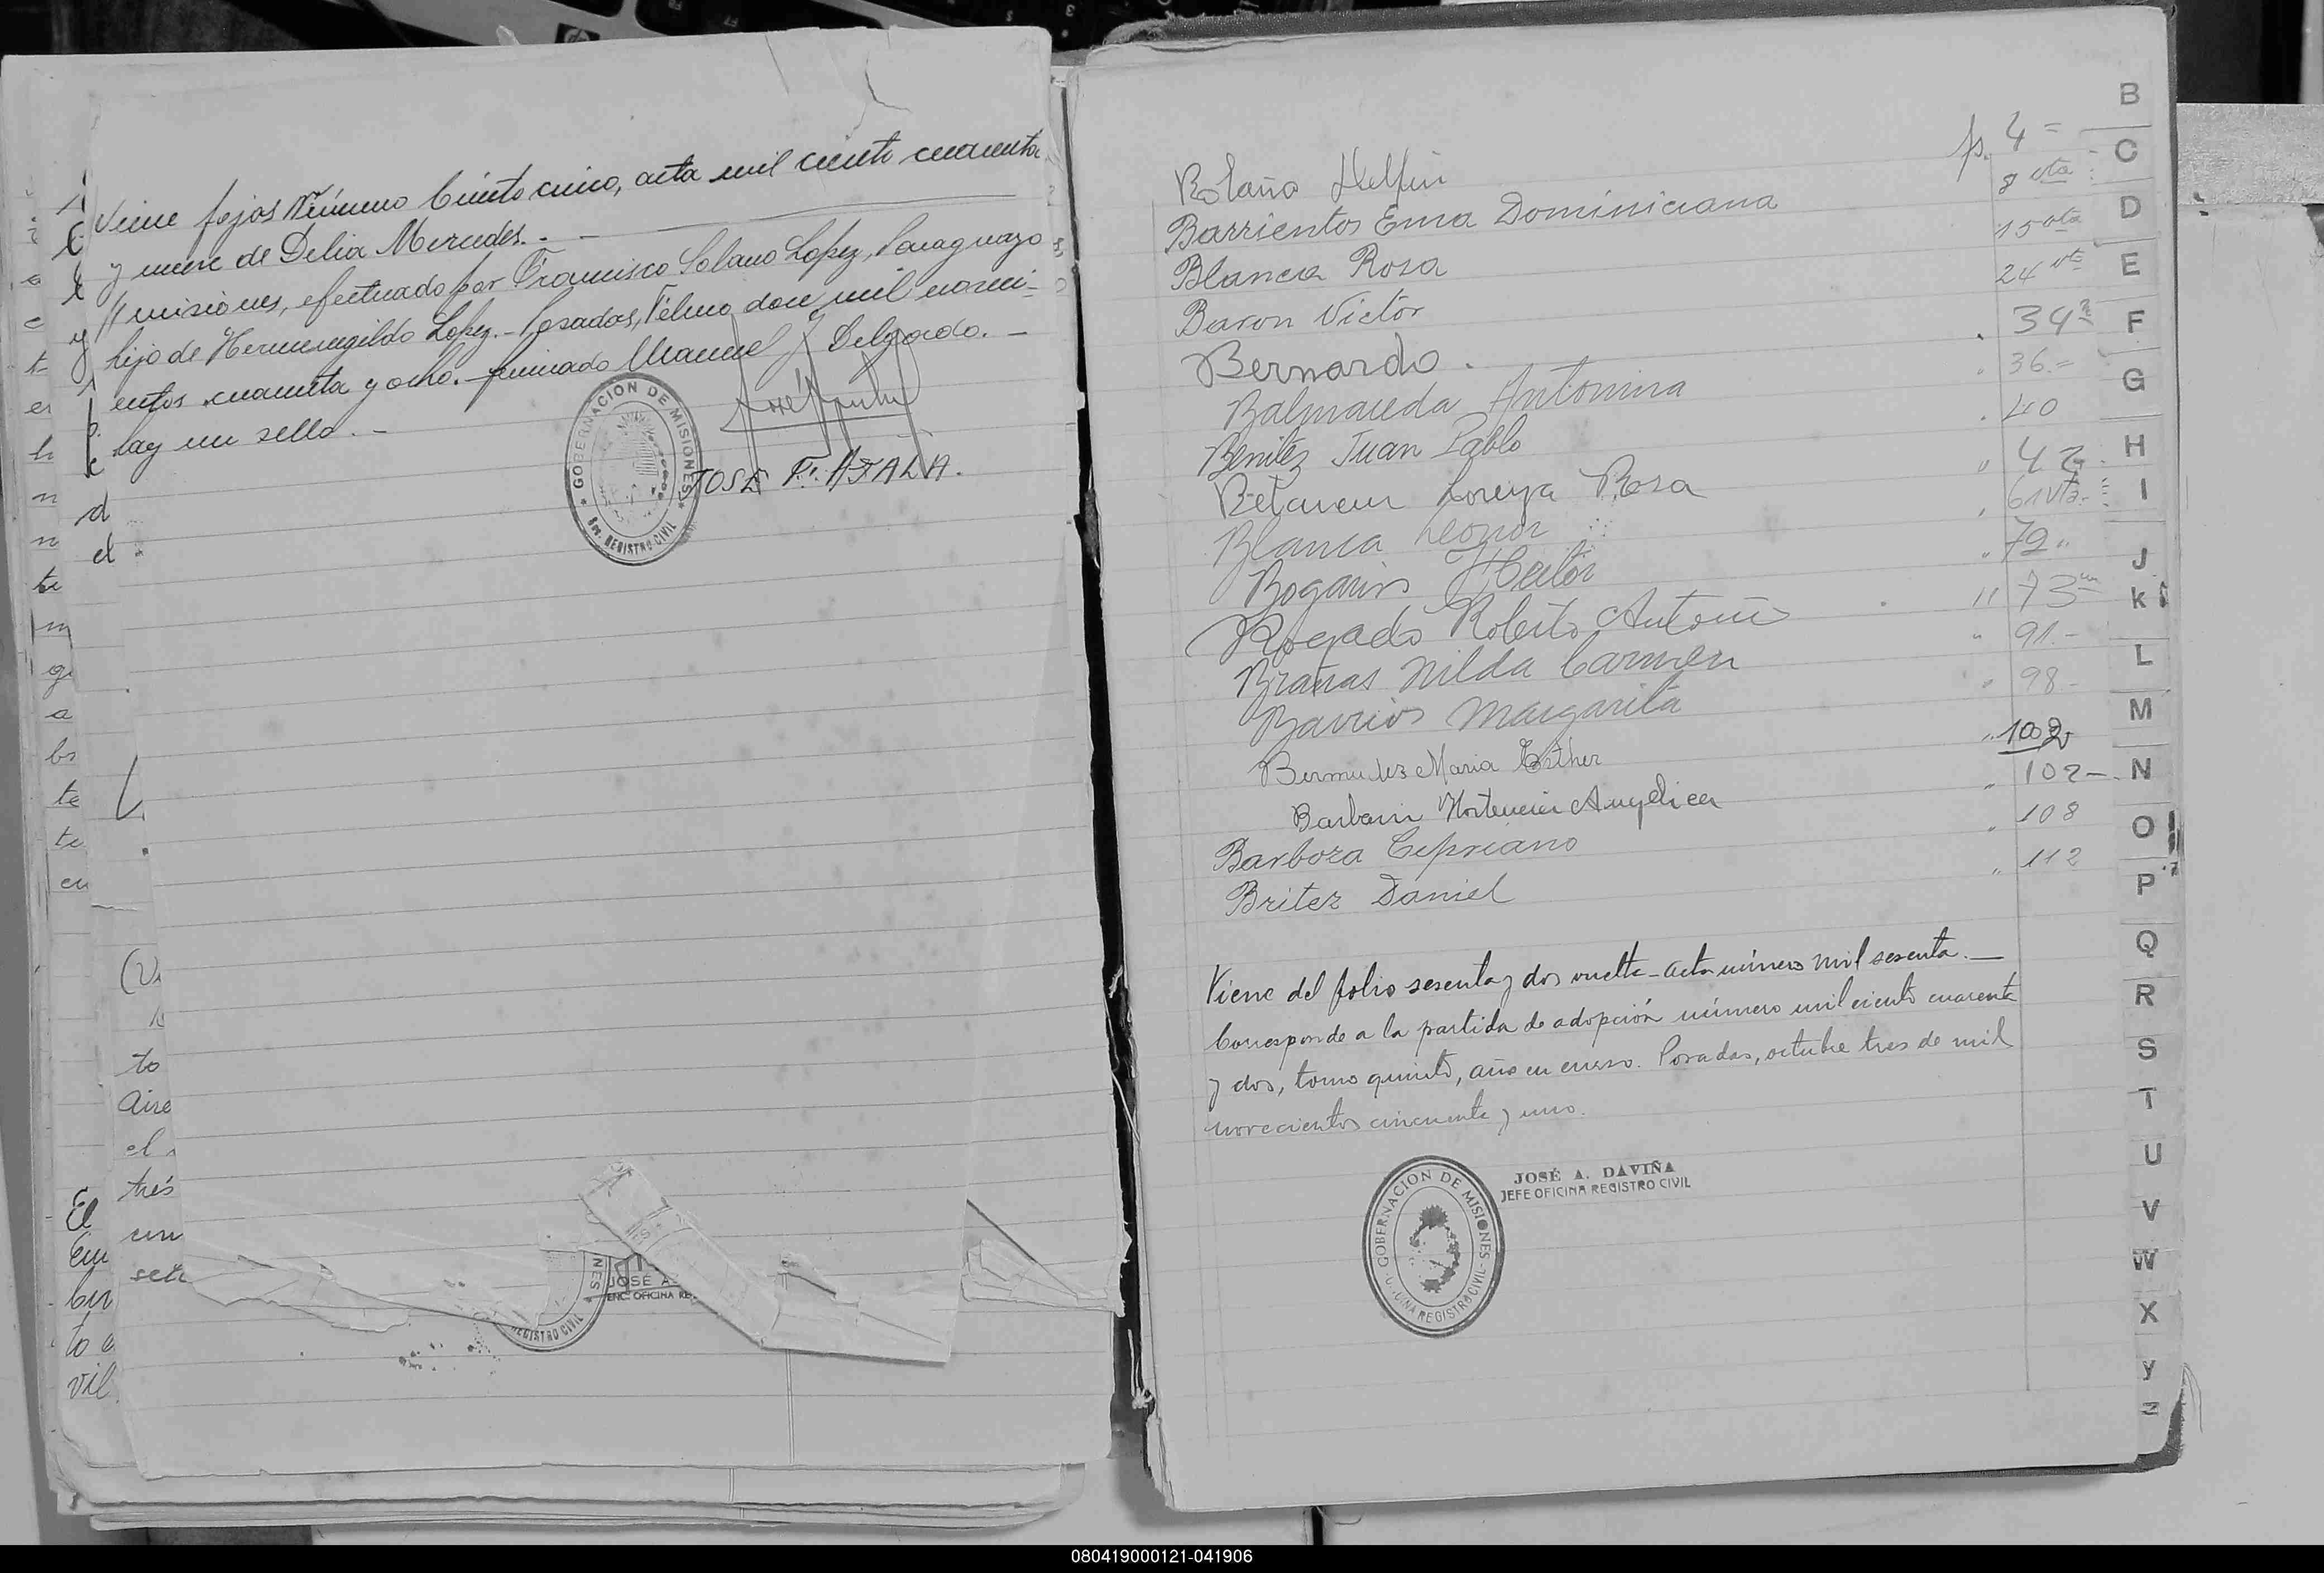 Viene fojas Número Ciento cinco, acta mil ciento cuarenta
y nueve de Delia Mercedes. -
// misiones, efectuado por Francisco Solano Lopez, Paraguayo
hijo de Hermenegildo Lopez. - Posadas, doce mil noveci-
entos cuarenta y ocho. - firmado Manuel J Delgado. -
hay un sello. -
GOBERNACION DE MISIONES
REGISTRO CIVIL
JOSE F. AYALA.
d
el
te
m
a
te
te
en
to
Aire
el
trés
un
El
to
vil
NES
REGISTRO CIVIL
JOSÉ A.
ENC. OFICINA RE
Bolaño Delfin fs. 4 =
Barrientos Ema Dominiciana 8 vta
Blanca Rosa 15 vta
Baron Victor 24 vta
Bernardo . 34
Balmaceda Antonina " 36.=
Benitez Juan Pablo " 40
Betancur Rosa " 42
Blanca Leonor " 61 vta.
Bogarin Hector " 72"
Bogado Roberto Antonio " 73
Brañas Nilda Carmen " 91.-
Barrios Margarita " 98-
Bermudez Maria Esther " 102
Hortencia Angelica " 102-
Barboza Cipriano " 108
Britez Daniel " 112
Viene del folio sesenta y dos vuelta - acta número mil sesenta. —
Corresponde a la partida de adopción número mil ciento cuarenta
y dos, tomo quinto, año en curso. Posadas, octubre tres de mil
novecientos cincuenta y uno.
GOBERNACION DE MISIONES
REGISTRO CIVIL
JOSÉ A. DAVIÑA
JEFE OFICINA REGISTRO CIVIL
B
C
D
E
F
G
H
I
J
K
L
M
N
O
P
Q
R
S
T
U
V
W
X
y
Z
080419000121-041906